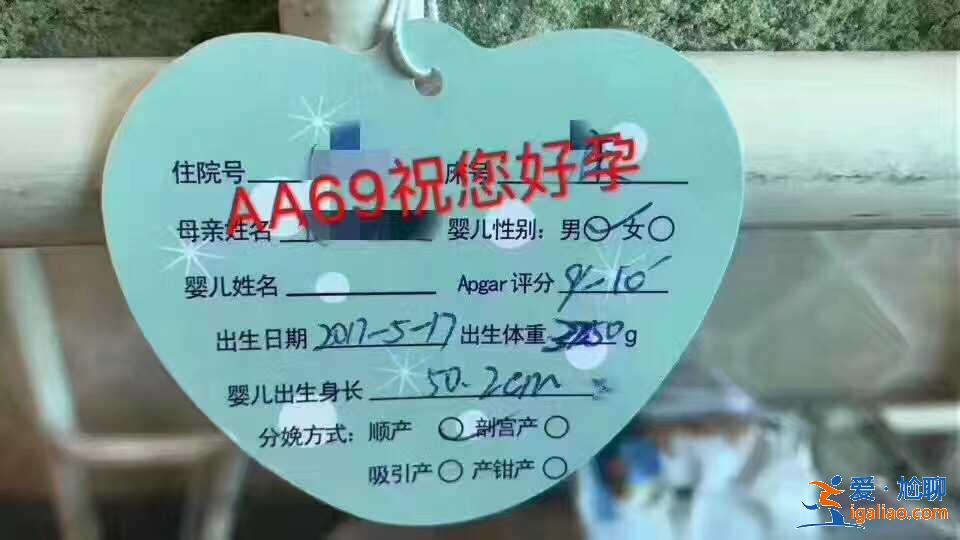 住院号 床号
AA69祝您好孕
母亲姓名 婴儿性别：男 女
婴儿姓名 Apgar评分 9-10
出生日期 2017-5-17 出生体重 g
婴儿出生身长 50.2cm
分娩方式：顺产 剖宫产
吸引产 产钳产
爱·尬聊
igaliao.com